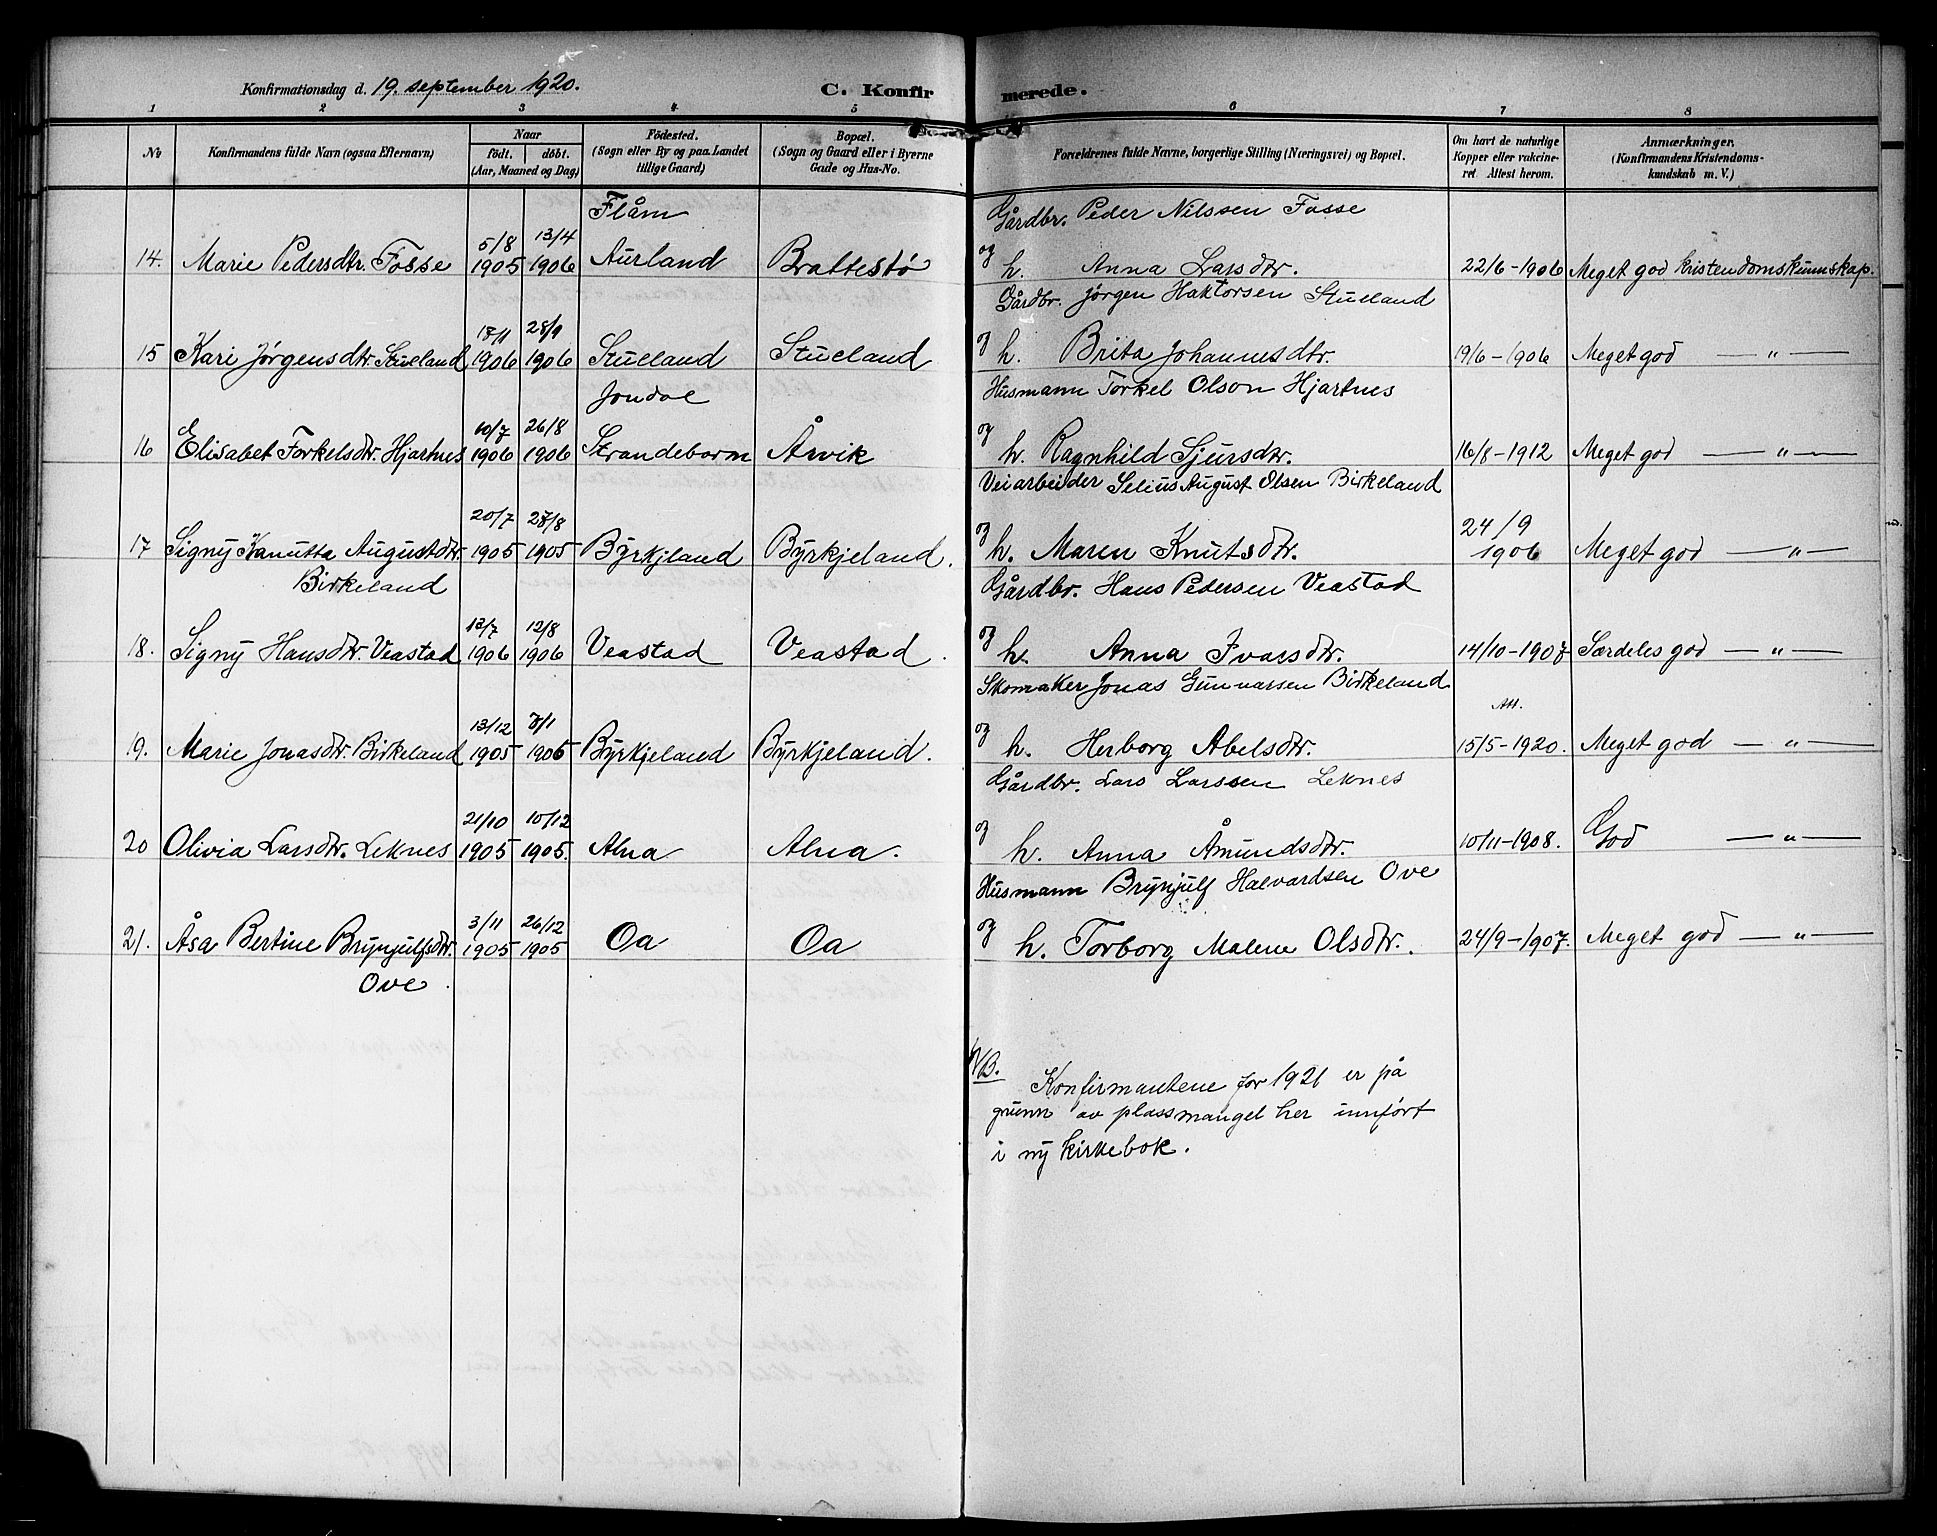 Konfirmationsdag d. 19. september 1920.
C. Konfirmerede.
1 2 3 4 5 6 7 8
No
Konfirmandens fulde Navn (ogsaa Efternavn)
Naar
födt. döbt.
(Aar, Maaned og Dag)
Födested.
(Sogn eller By og paa Landet
tillige Gaard)
Bopæl.
(Sogn og Gaard eller i Byerne
Gade og Hus-No.
Forældrenes fulde Navne, borgerlige Stilling (Næringsvei) og Bopæl.
Om havt de naturlige
Kopper eller vakcine-
ret Attest herom.
Anmærkninger.
(Konfirmandens Kristendoms-
kundskab m. V.)
Flåm Gårdbr. Peder Nilssen Fosse
5/8 13/4 og
14. Marie Pedersdtr. Fosse 1905 1906 Aurland Brattestö h. Anna Larsdtr. 22/6-1906 Meget god Kristendomskunnskap.
Gårdbr. Jørgen Haktorsen Stueland
18/1 28/9 og
15 Kari Jørgensdtr. Stueland 1906 1906 Stueland Stueland h. Brita Johannesdtr. 19/6-1906 Meget god — " —
Jondal Husmann Torkel Olson Hjartnes
10/7 26/8 og
16 Elisabet Torkelsdtr. Hjartnes 1906 1906 Strandebarm Årvik h. Ragnhild Sjursdtr. 16/8-1912 Meget god — " —
Veiarbeider Selius August Olsen Birkeland
20/7 27/8 og 24/9
17 Signy Kanutta Augustdtr. 1905 1905 Byrkjeland Byrkjeland. h. Maren Knutsdtr. 1906 Meget god — " —
Birkeland Gårdbr. Hans Pedersen Veastad
12/7 12/8 og
18. Signy Hansdtr. Veastad 1906 1906 Veastad Veastad. h. Anna Ivarsdtr. 14/10-1907 Særdeles god — " —
Skomaker Jonas Gunnarsen Birkeland
13/12 7/1 og Att.
19. Marie Jonasdtr. Birkeland 1905 1906 Byrkjeland Byrkjeland. h. Herborg Abelsdtr. 15/5-1920. Meget god — " —
Gårdbr. Lars Larssen Leknes
21/10 10/12 og
20 Olivia Larsdtr. Leknes 1905 1905. Alna Alna. h. Anna Åmundsdtr. 10/11-1908. God — " —
Husmann Brynjulf Halvardsen Ove
3/11 26/12 og
21. Åsa Bertine Brynjulfsdtr. 1905 1905 Oa Oa h. Torborg Malene Olsdtr. 24/9-1907. Meget god — " —
Ove
NB.
Konfirmantene for 1921 er på
grunn av plassmangel her innført
i ny kirkebok.